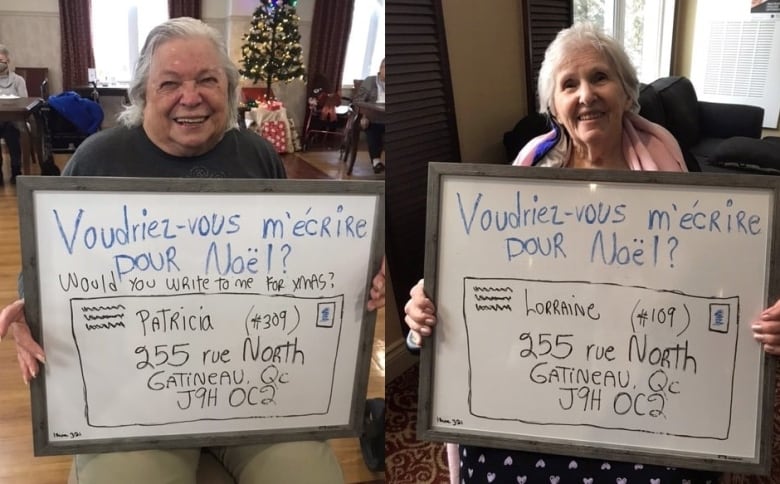 Voudriez-vous m'écrire
pour Noël?
Would you write to me for xmas?
Patricia (#309)
255 rue North
Gatineau, Qc
J9H 0C2
Voudriez-vous m'écrire
pour Noël?
Lorraine (#109)
255 rue North
Gatineau, Qc
J9H 0C2